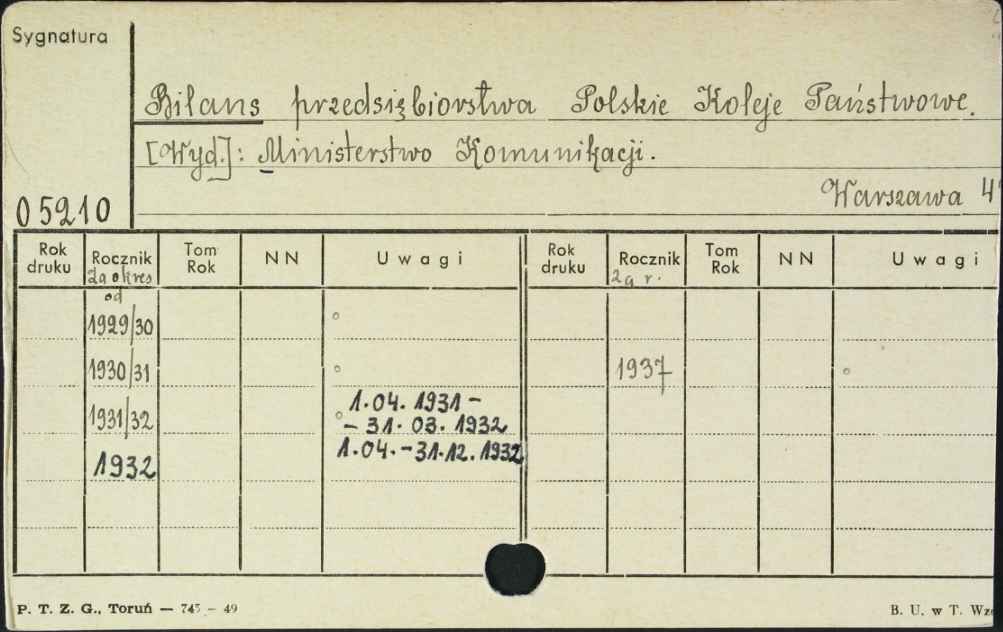 Sygnatura
Bilans przedsiębiorstwa Polskie Koleje Państwowe.
[Wyd.]: Ministerstwo Komunikacji.
Warszawa 4°
05210
Rok druku Rocznik Tom Rok NN Uwagi Rok druku Rocznik Tom Rok NN Uwagi
za okres za r.
od
1929/30
1930/31 1937
1931/32 1.04. 1931 -
- 31. 03. 1932
1932 1.04. - 31.12. 1932
P. T. Z. G., Toruń — 745 - 49 B. U. w T.